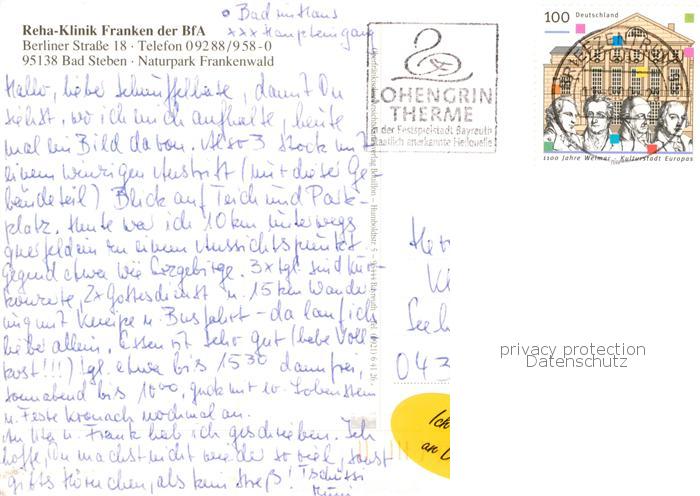 o Bad im Haus
xxx Haupteingang
Reha-Klinik Franken der BfA
Berliner Straße 18 · Telefon 09288/958-0
95138 Bad Steben · Naturpark Frankenwald
Hallo, liebe, damit Du
siehst, wo ich mich aufhalte, heute
mal ein Bild davon. Also 3 Stock mit
einem winzigen (nur dieser Ge-
bäudeteil) Blick auf Teich und Park-
platz. Heute war ich 10 km unterwegs
querfeldein zu einem Aussichtspunkt
Gegend etwa wie Erzgebirge. 3x tgl. sind Kur-
konzerte, 2x Gottesdienst u. 15 km Wande-
rung mit Kneipe u. Busfahrt - da lauf ich
lieber allein. Essen ist sehr gut (habe Voll-
kost!!!) tgl. etwa bis 15 30 dann frei,
sonnabend bis 10 00, guck mir so. Lobenstein
u. Feste Kronach nochmal an.
An u. Frank hab ich geschrieben. Ich
hoffe, Du machst nicht wieder so viel, sonst
gibts Hörnchen, als kein Streß! Tschüssi
LOHENGRIN
THERME
der Festspielstadt Bayreuth
Staatlich anerkannte Heilquelle
100 Deutschland
BRIEFZENTRUM
1100 Jahre Weimar · Kulturstadt Europas
043
Ich
an
privacy protection
Datenschutz